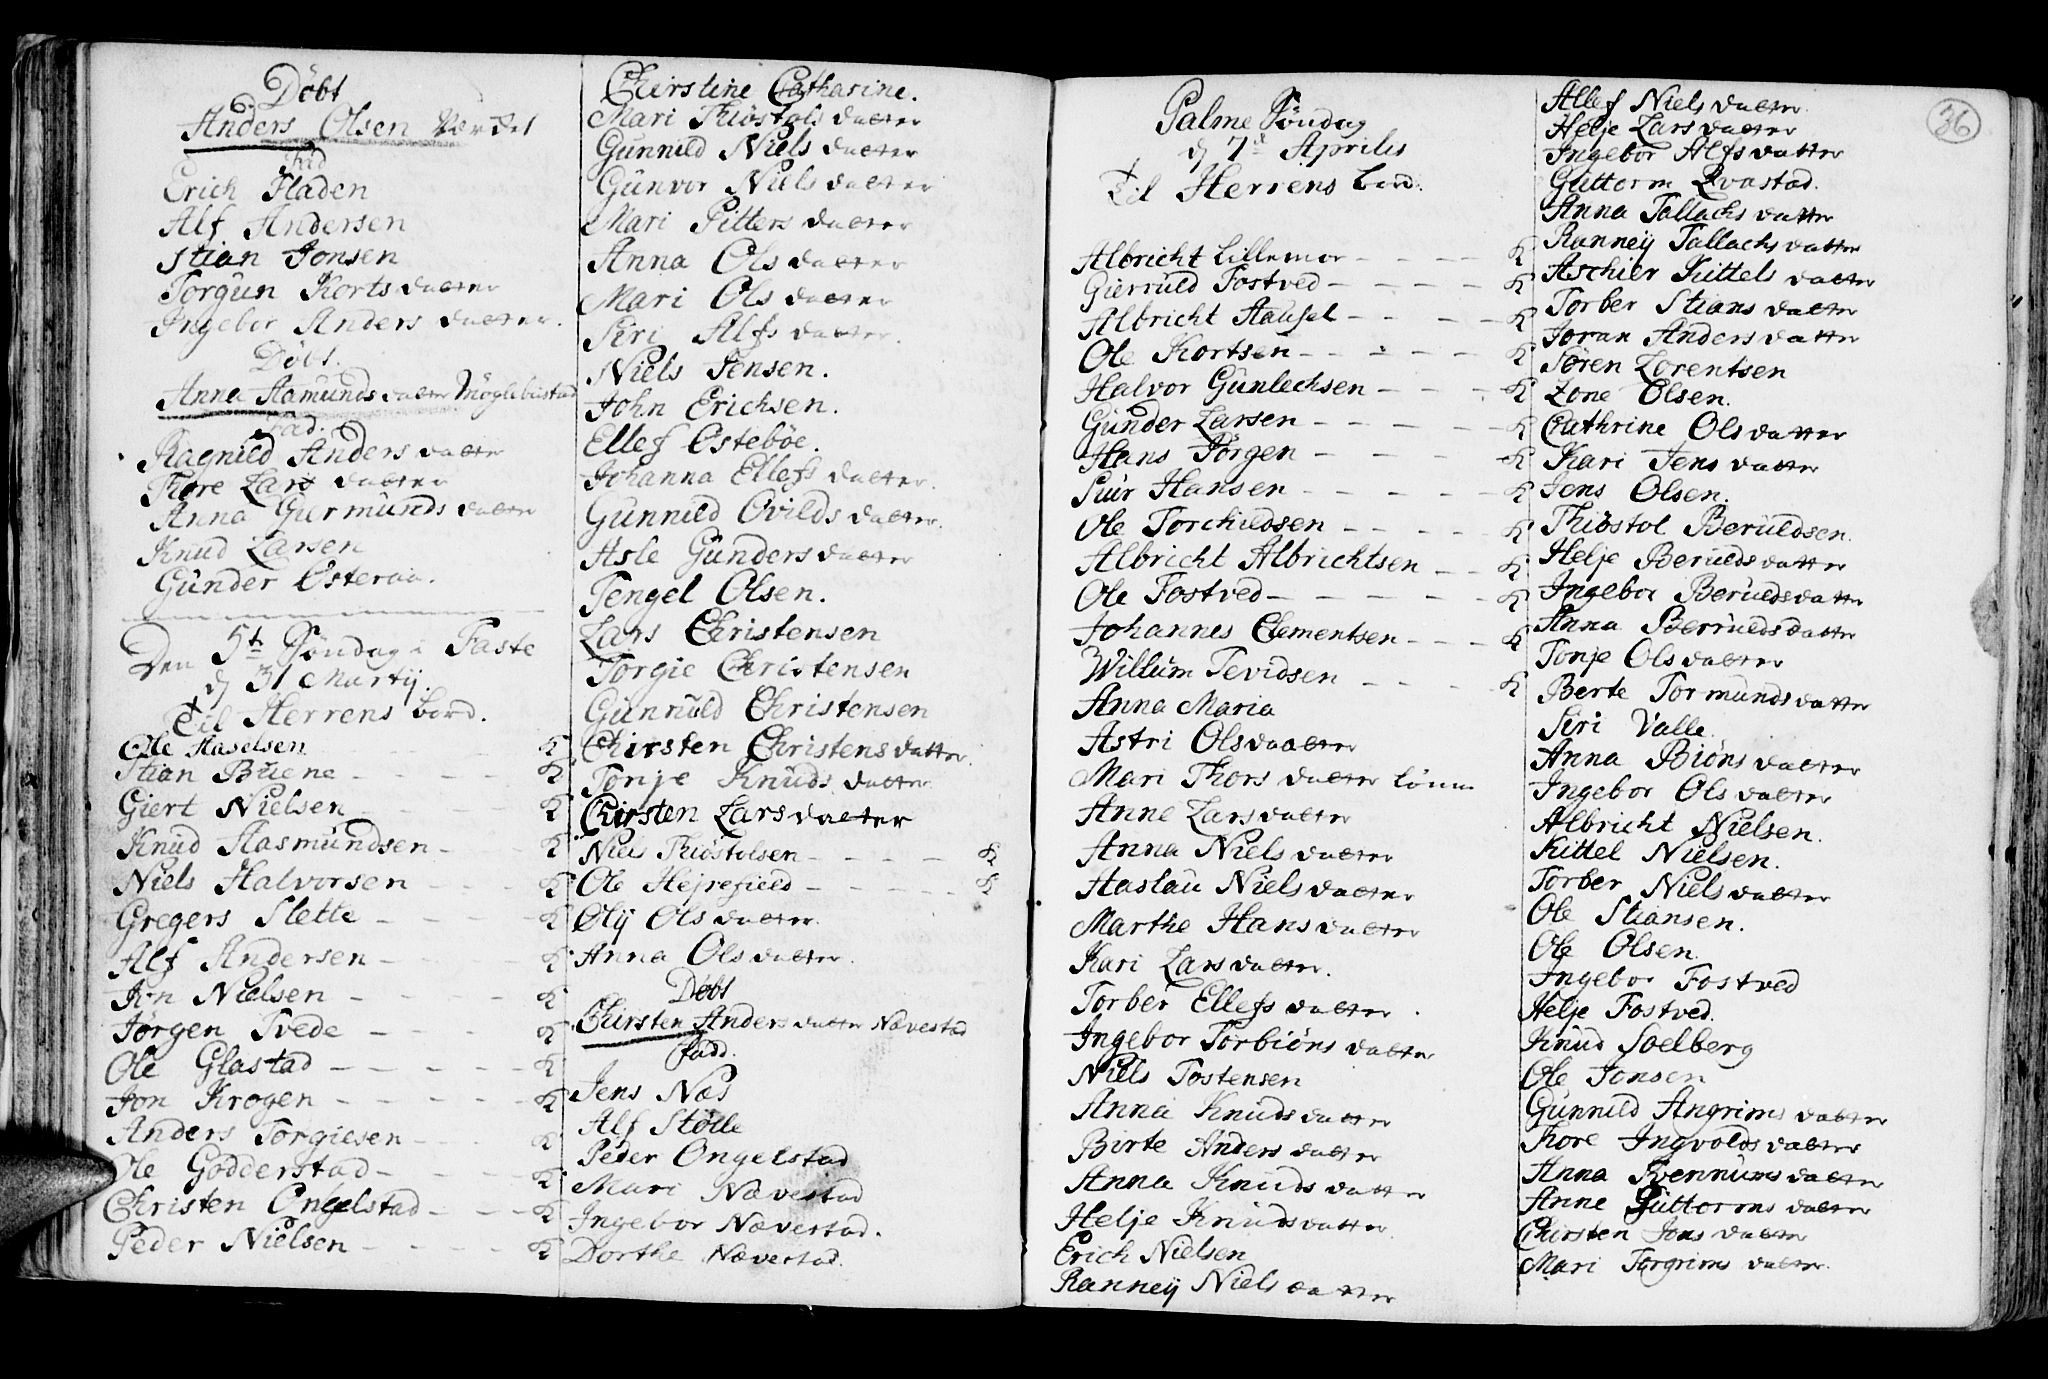 Døbt
Anders Olsen
Fad
Erich Haden
Alf Andersen
Stian Jonsen
Torgun Korts datter
Ingebor Anders datter.
Døbt.
Anna Aamunds datter Møglebustad
Fad.
Ragnild Anders datter
Thore Lars datter
Anna Giermunds datter
Knud Larsen
Gunder Østeraa.
Den 5te Søndag i Faste
d 31 Martij
Til Herrens bord.
Ole Aaselsen K
Stian Buene K
Giert Nielsen K
Knud Aasmundsen K
Niels Halvorsen K
Gregers Slette K
Alf Andersen K
Jon Nielsen K
Jørgen Tvede K
Ole Glastad K
Jon Krogen K
Anders Torgiesen K
Ole Godderstad K
Christen Ongelstad K
Peder Nielsen K
Chirstine Catharine.
Mari Thiøstols datter
Gunnild Niels datter
Gunvor Niels datter
Mari Pitters datter
Anna Ols datter
Mari Ols datter
Siri Alfs datter.
Niels Jensen.
John Erichsen.
Ellef Østebøe.
Johanna Ellefs datter.
Gunnild Ovilds datter.
Asle Gunders datter
Tengel Olsen.
Lars Christensen
Torgie Christensen
Gunnuld Christensen
Chirsten Christens datter.
Tonje Knuds datter
Chirsten Lars datter
Niels Thiøstolsen K
Ole Hejrefield K
Olij Ols datter.
Anna Ols datter.
Døbt
Chirsten Anders datter Nævestad
Fadd.
Jens Næs
Alf Stølle
Peder Ongelstad
Mari Nævestad
Ingebor Nævestad.
Dorthe Nævestad.
Palme Søndag
d 7de Aprilis
Til Herrens bord.
Albricht Lillemor K
Gierruld Fostved K
Albricht Aausel K
Ole Kortsen K
Halvor Gunlechsen K
Gunder Larsen K
Hans Jørgen K
Siur Hansen K
Ole Torchildsen K
Albricht Albrichtsen K
Ole Fostved K
Johannes Clementsen K
Willum Tevidsen K
Anna Maria
Astri Olsdaatter
Mari Thors datter
Anne Lars datter
Anna Niels datter
Aaslau Niels datter
Marthe Hans datter
Kari Lars datter.
Torber Ellefs datter.
Ingebor Torbiøns datter
Niels Tostensen
Anna Knuds datter
Birte Anders datter
Anna Knuds datter
Helje Knuds datter.
Erich Nielsen
Ranneij Niels datter
36
Allef Niels datter.
Helje Lars datter
Ingebor Alfs datter
Guttorm Qvastad.
Anna Tallachs datter
Ranneij Tallachs datter
Aschier Kittels datter
Torber Stians datter
Joran Anders datter
Søren Lorentsen
Lone Olsen.
Cathrine Ols datter
Kari Jens datter
Jens Olsen.
Thiøstol Beruldsen.
Helje Berulds datter
Ingebor Berulds datter
Anna Berrulds datter
Tonje Ols datter
Berte Tormunds datter
Siri Valle.
Anna Biøns datter
Ingebor Ols datter
Albricht Nielsen.
Kittel Nielsen.
Torber Niels datter
Ole Stiansen.
Ole Olsen.
Ingebor Fostved
Helje Fostved.
Knud Solberg
Ole Jonsen
Gunnild Angrims datter
Thore Ingvolds datter
Anna Svennums datter
Anne Guttorms datter
Chirsten Jons datter
Mari Torgrims datter.